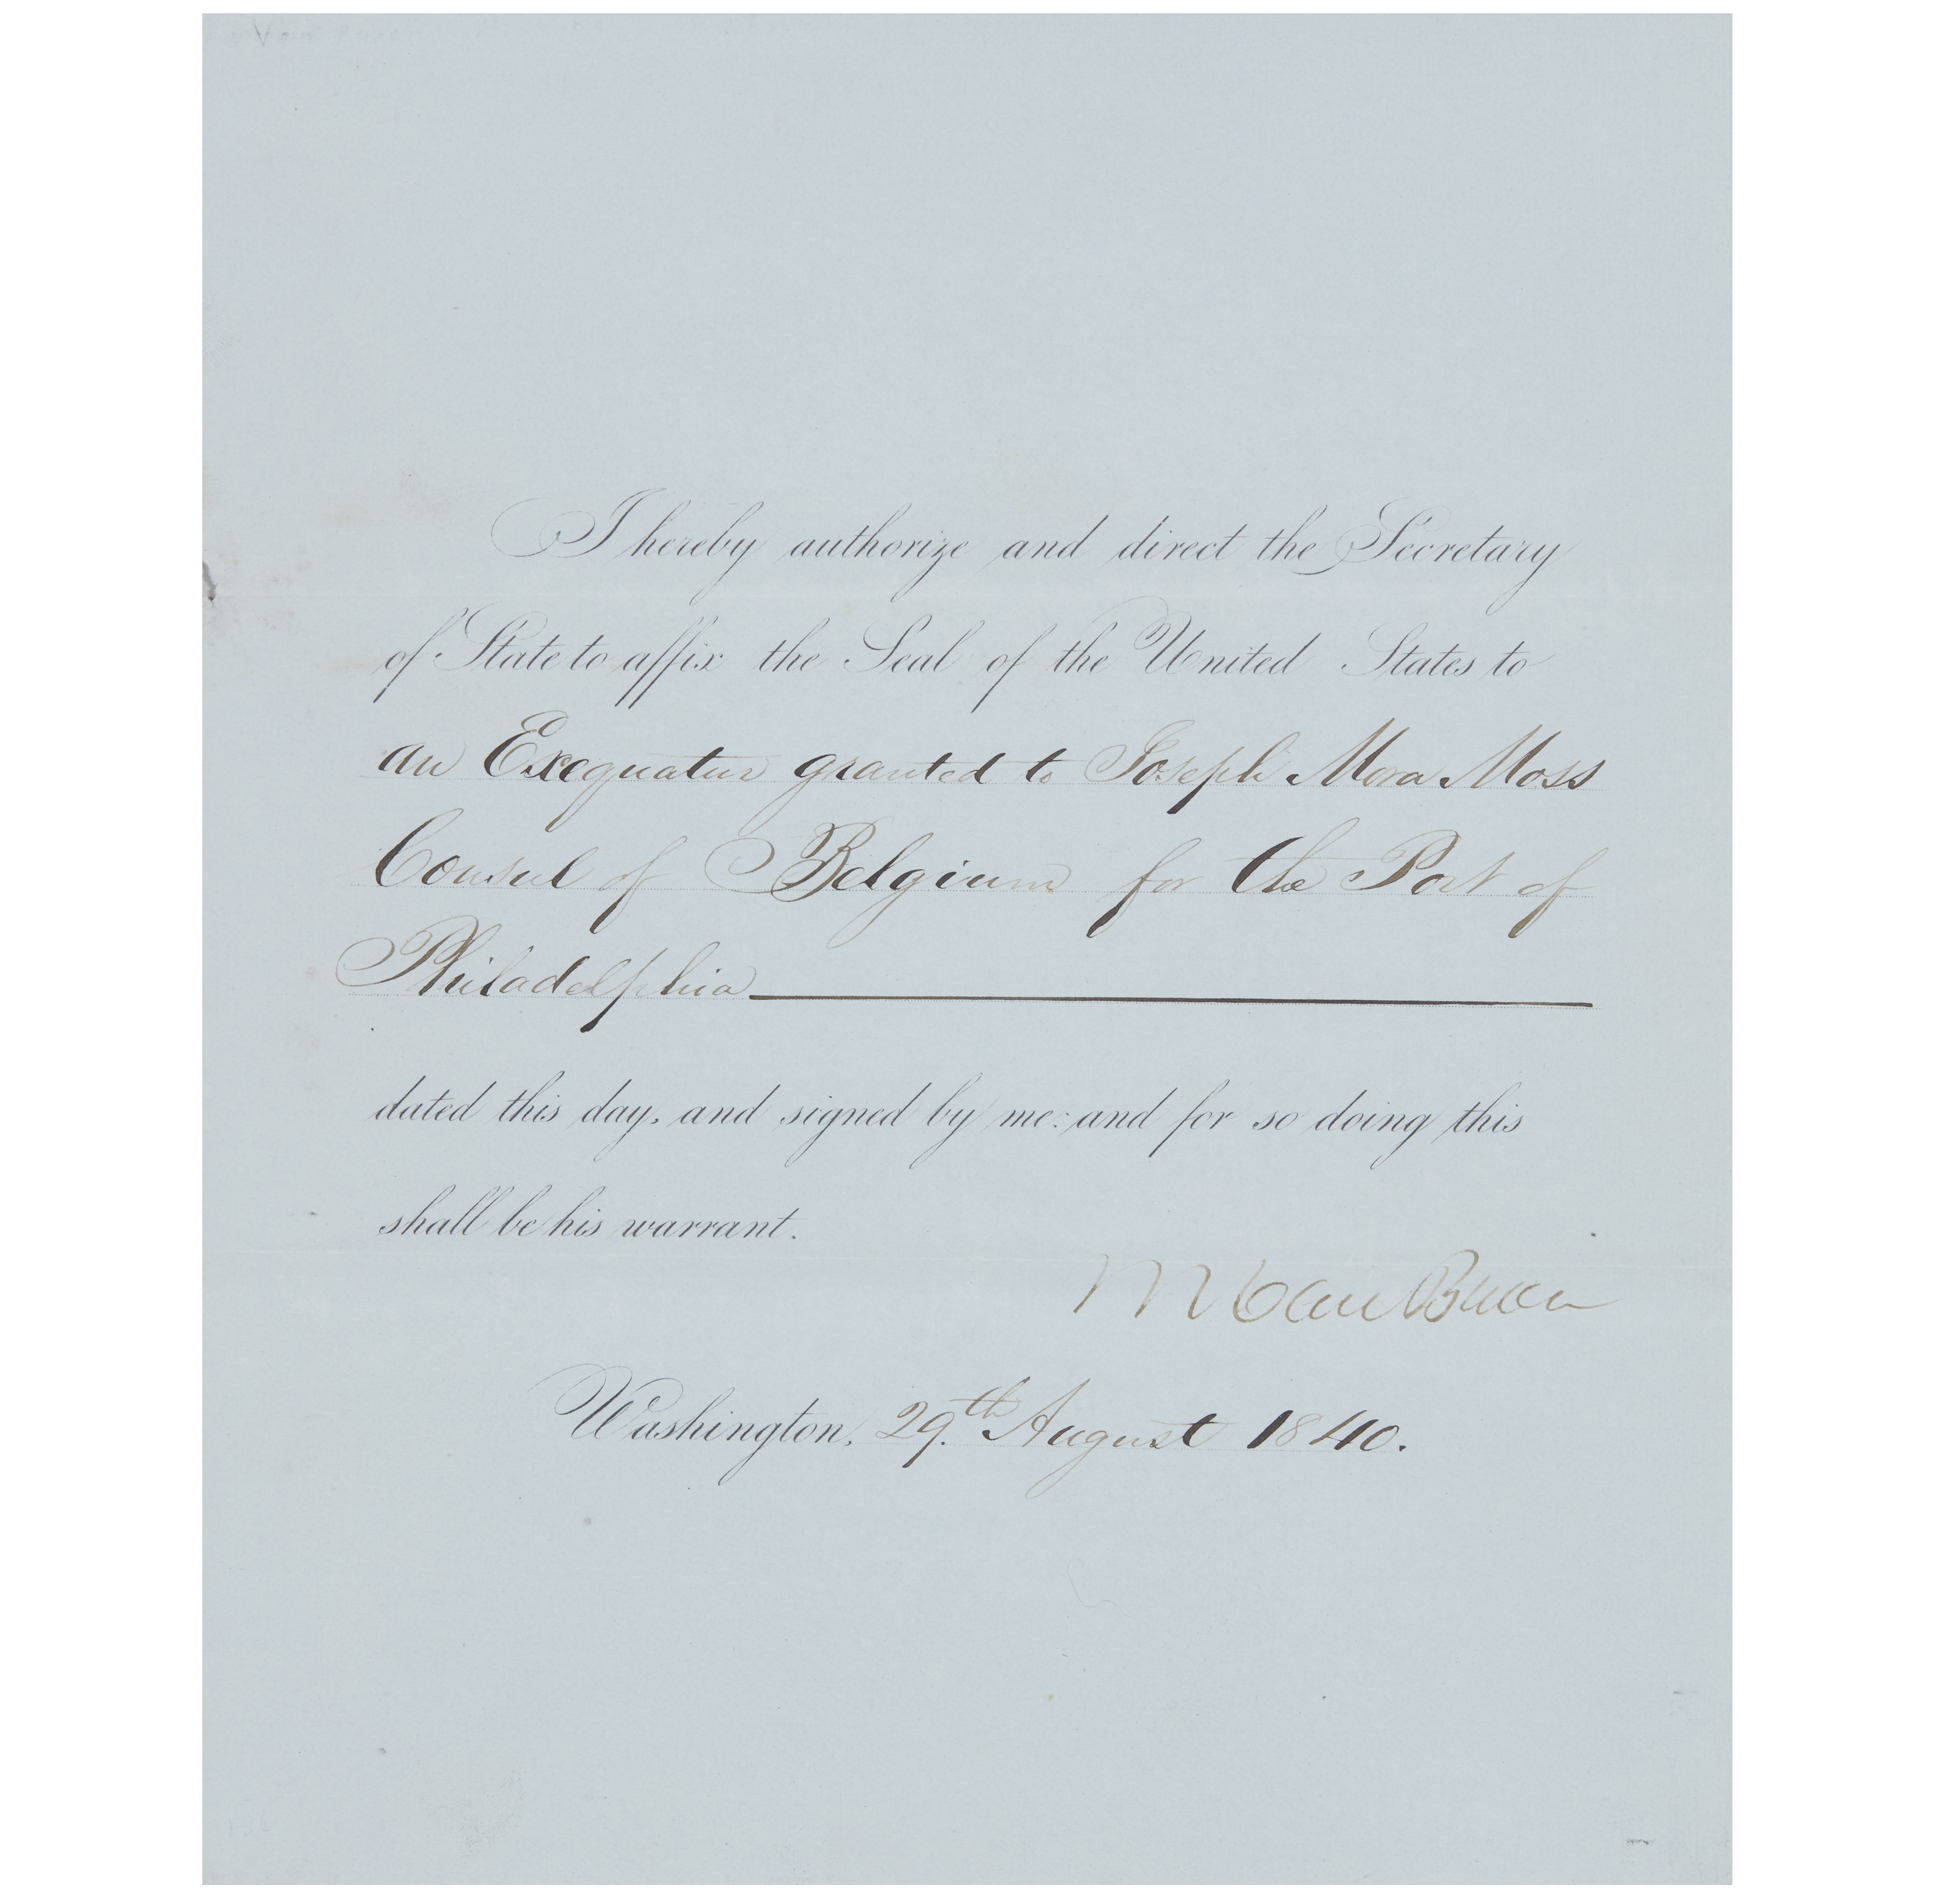 Van Buren
I hereby authorize and direct the Secretary
of State to affix the Seal of the United States to
an Exequatur granted to Joseph Mora Moss
Consul of Belgium for the Port of
Philadelphia
dated this day, and signed by me: and for so doing this
shall be his warrant.
M Van Buren
Washington, 29th. August 1840.